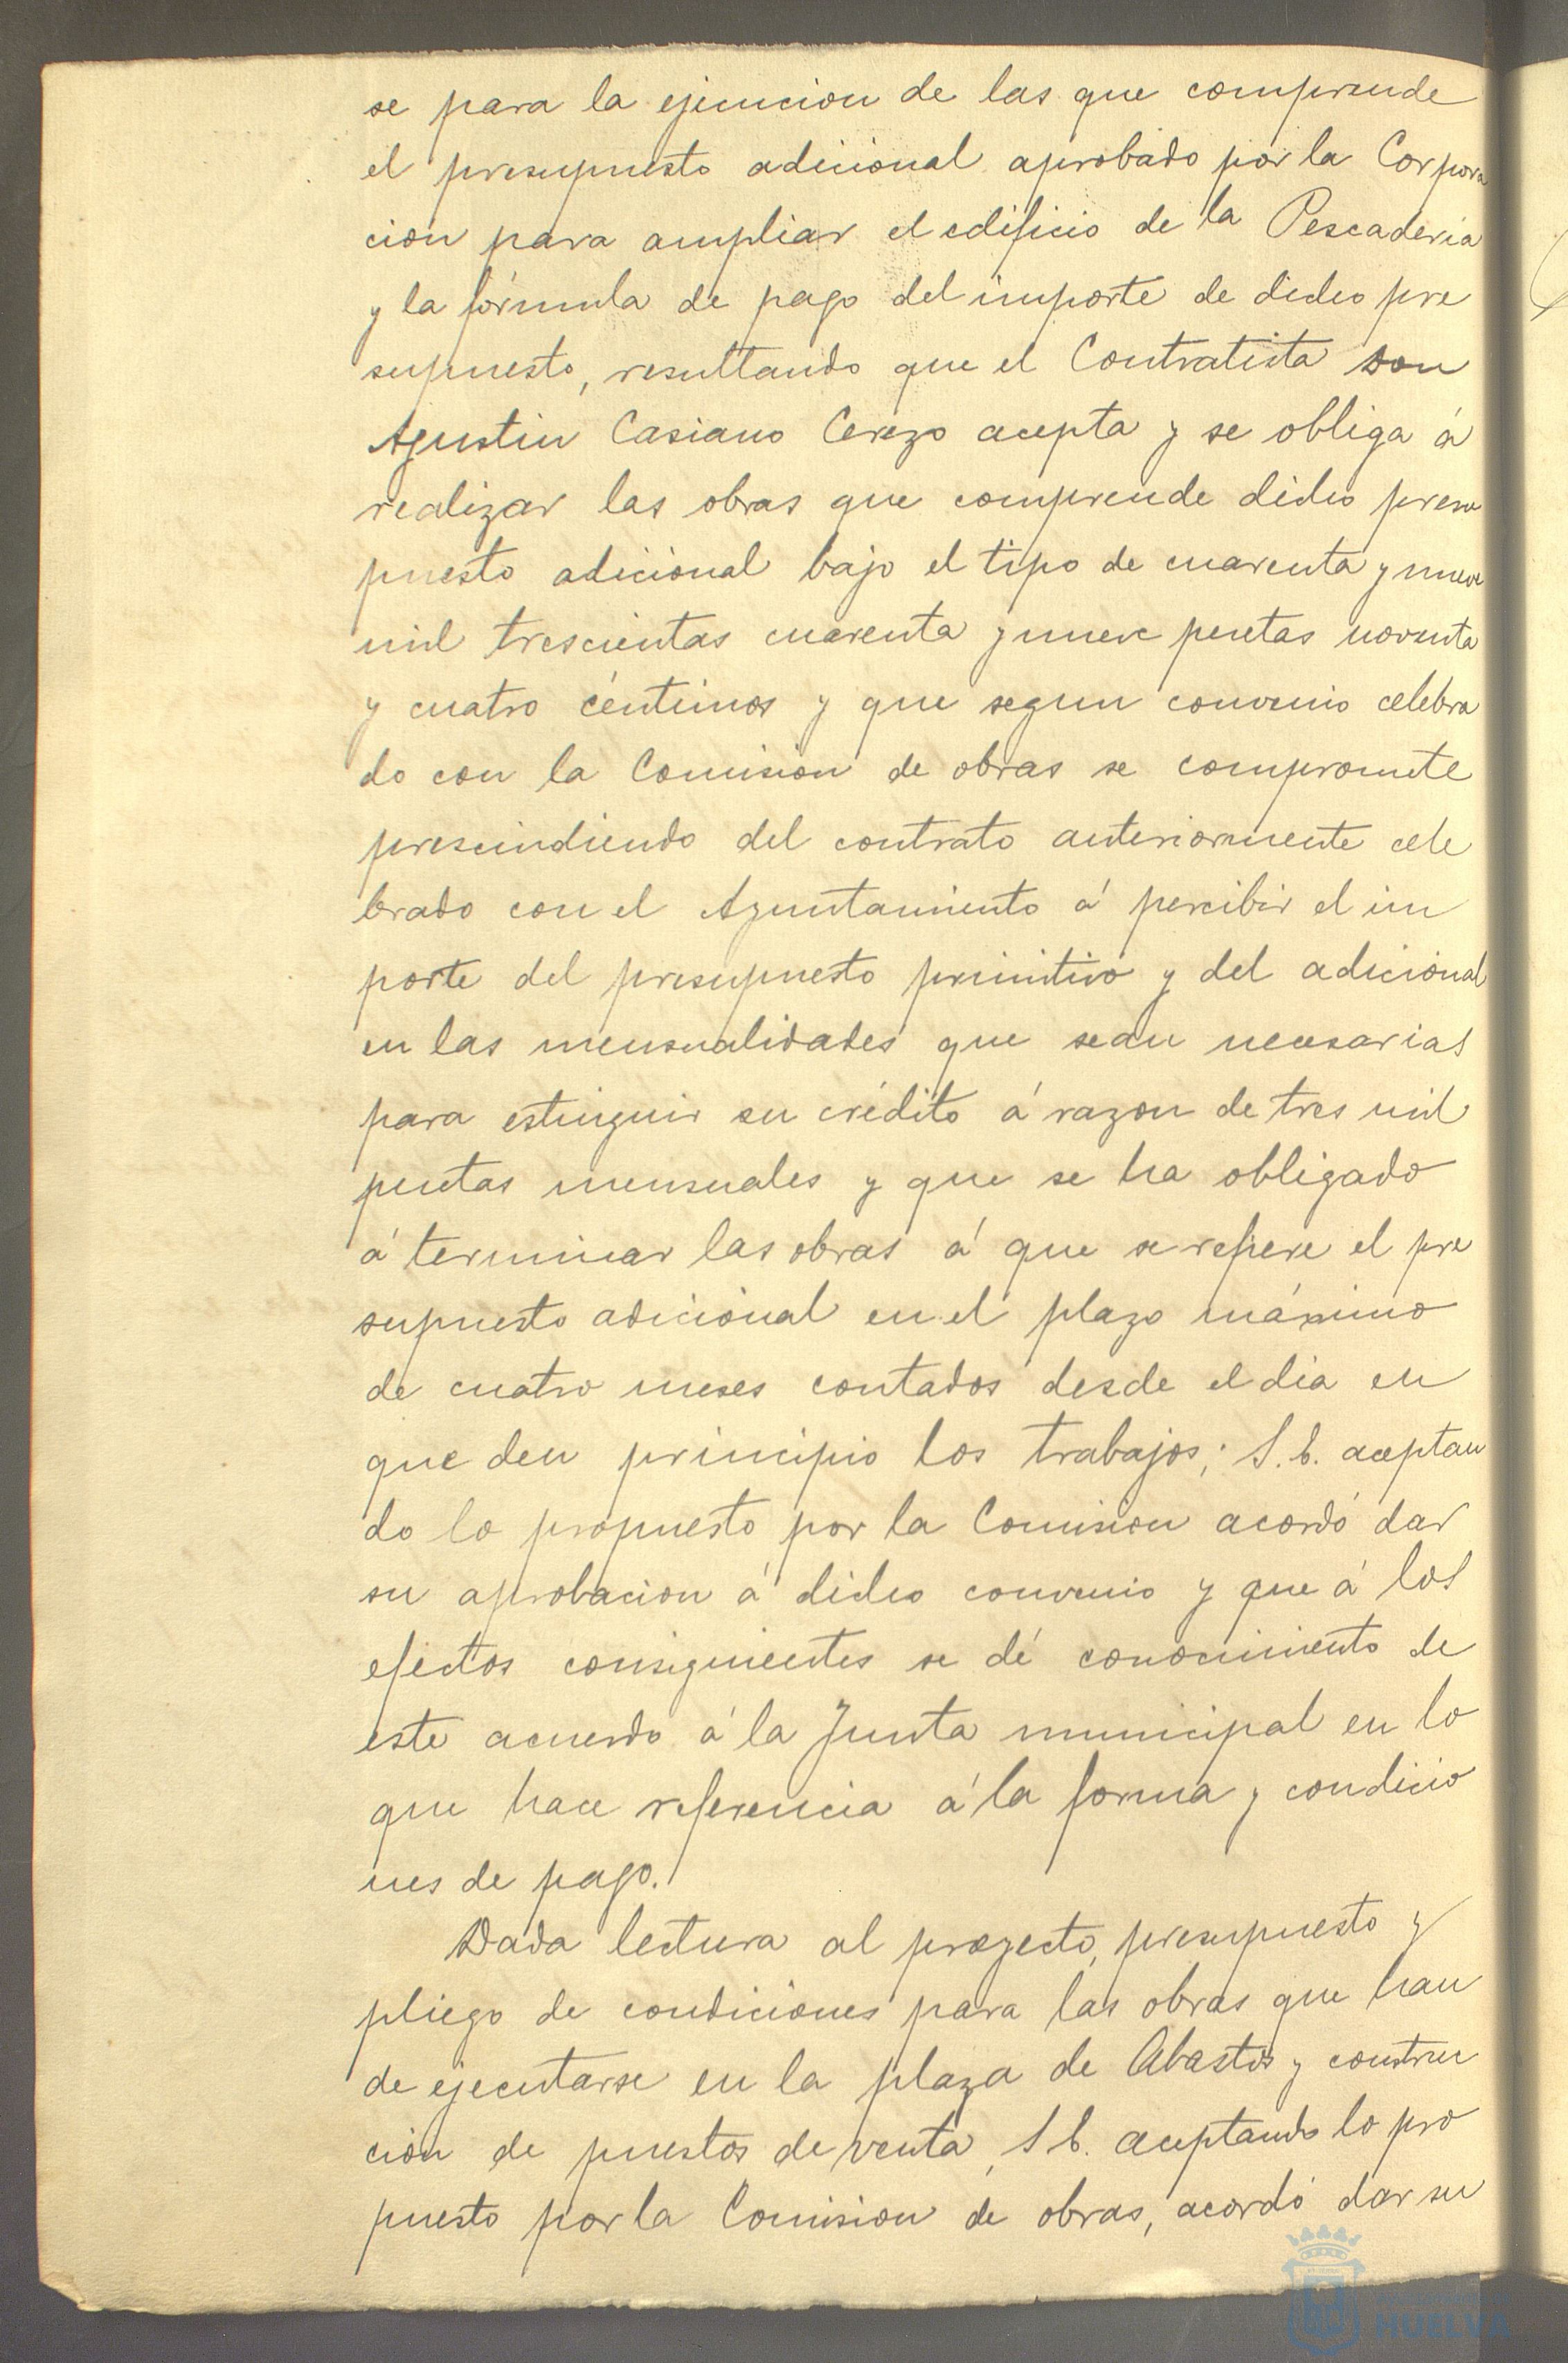 se para la ejecucion de las que comprende
el presupuesto adicional aprobado por la Corpora
cion para ampliar el edificio de la Pescaderia
y la fórmula de pago del importe de dicho pre
supuesto, resultando que el Contratista Don
Agustin Casiano Cerezo acepta y se obliga á
realizar las obras que comprende dicho presu
puesto adicional bajo el tipo de cuarenta y nueve
mil trescientas cuarenta y nueve pesetas noventa
y cuatro céntimos y que segun convenio celebra
do con la Comision de obras se compromete
prescindiendo del contrato anteriormente cele
brado con el Ayuntamiento á percibir el im
porte del presupuesto primitivo y del adicional
en las mensualidades que sean necesarias
para estinguir su crédito á razon de tres mil
pesetas mensuales y que se ha obligado
á terminar las obras á que se refiere el pre
supuesto adicional en el plazo máximo
de cuatro meses contados desde el dia en
que den principio los trabajos; S. E. aceptan
do lo propuesto por la Comision acordó dar
su aprobacion á dicho convenio y que á los
efectos consiguientes se dé conocimiento de
este acuerdo á la Junta municipal en lo
que hace referencia á la forma y condicio
nes de pago.
Dada lectura al proyecto, presupuesto y
pliego de condiciones para las obras que han
de ejecutarse en la plaza de Abastos y construc
ción de puestos de venta, S E. aceptando lo pro
puesto por la Comision de obras, acordó dar su
HUELVA